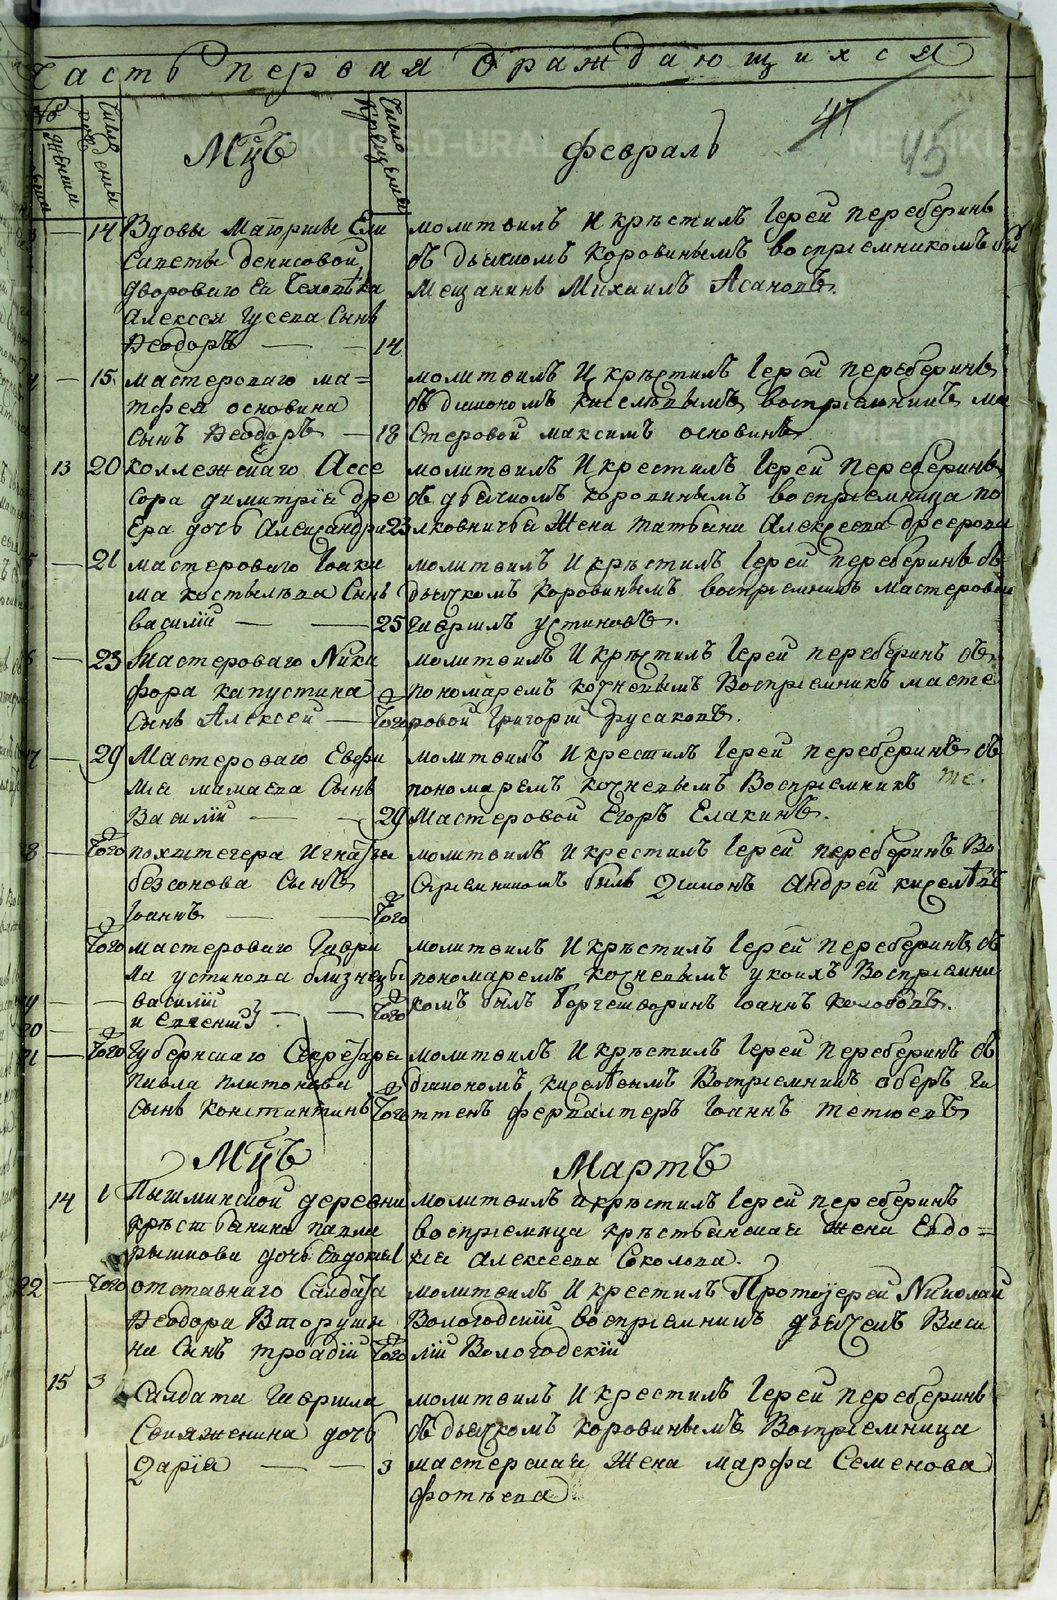 Часть первая о раждающихся
№
Число рождения
женска
Число крещения
Мцъ
февраль
47
45
14 Вдовы Маіорши Ели
саветы денисовой
двороваго Ея Человѣка
Алексея Гусева Сынъ
Ѳеодоръ — — 14
молитвилъ И крѣстилъ Іерей переберинъ
съ дьячкомъ Коровинымъ воспріемникомъ
Мещанинъ Михаилъ Асановъ.
— 15 мастероваго ма=
тфея основина
сынъ Ѳеодоръ — 18
молитвилъ И крѣстилъ Іерей переберинъ
съ диакономъ киселевымъ, воспріемникъ ма
стеровой максимъ основинъ
13 20 коллежскаго Ассе
сора димитрія дре
Ера дочь Александра 23
молитвилъ И крестилъ Іерей Переберинъ
съ дьячкомъ коровинымъ воспріемница по
лковничья Жена татьяна Алексеева дреерова
— 21 мастероваго Іоаки
ма костылева Сынъ
василій — — 25
молитвилъ И крѣстилъ Іерей переберинъ съ
дьячкомъ Коровинымъ воспріемникъ мастеровой
Гаврилъ устиновъ.
— 23 Мастероваго Ники
фора капустина
сынъ Алексей — Того
молитвилъ И крѣстилъ Іерей переберинъ съ
пономаремъ кочневымъ Воспріемникъ масте
ровой Григорій русаковъ.
17 — 29 Мастероваго Евфи
мія мамаева Сынъ
Василій — — 29
молитвилъ И крестилъ Іерей переберинъ съ
пономаремъ кочневымъ Воспріемникъ
Мастеровой Егоръ Елакинъ.
18 — Того похштегера Игнатья
безсонова Сынъ
Іоаннъ — — Того
молитвилъ И крестилъ Іерей переберинъ Во
спріемникомъ былъ диаконъ Андрей киселевъ
Того мастероваго Гаври
ла устинова близнецы
19 — василій
20 и евгеній — — Того
молитвилъ И крѣстилъ Іерей Переберинъ съ
пономаремъ кочневымъ у коихъ Воспріемни
комъ былъ бергешворинъ Іоаннъ Колобовъ.
21 — Того Губернскаго Секретаря
павла платонова
сынъ константинъ Того
молитвилъ И крѣстилъ Іерей Переберинъ съ
диакономъ киселевымъ Воспріемникъ оберъ Ги
ттенъ фервалтеръ Іоаннъ Тетюевъ
Мцъ
Мартъ
14 1 Пышминской деревни
крѣстьянина павла
рышкова дочь Евдокія 1
молитвилъ И крѣстилъ Іерей переберинъ
воспріемица крѣстьянская Жена Евдо=
кія Алексеева Соколова.
22 — Того отставнаго Салдата
Ѳеодора Вторуши
на Сынъ троадій Того
молитвилъ И крестилъ Протоіерей Николай
Вологодскій воспріемникъ дьячекъ Васи
лій Вологодскій
15 3 Салдата Гаврила
Свияженина дочь
Дарія — — 3
молитвилъ И крестилъ Іерей переберинъ
съ дьячкомъ Коровинымъ Воспріемница
мастерская Жена марфа Семенова
фотѣева